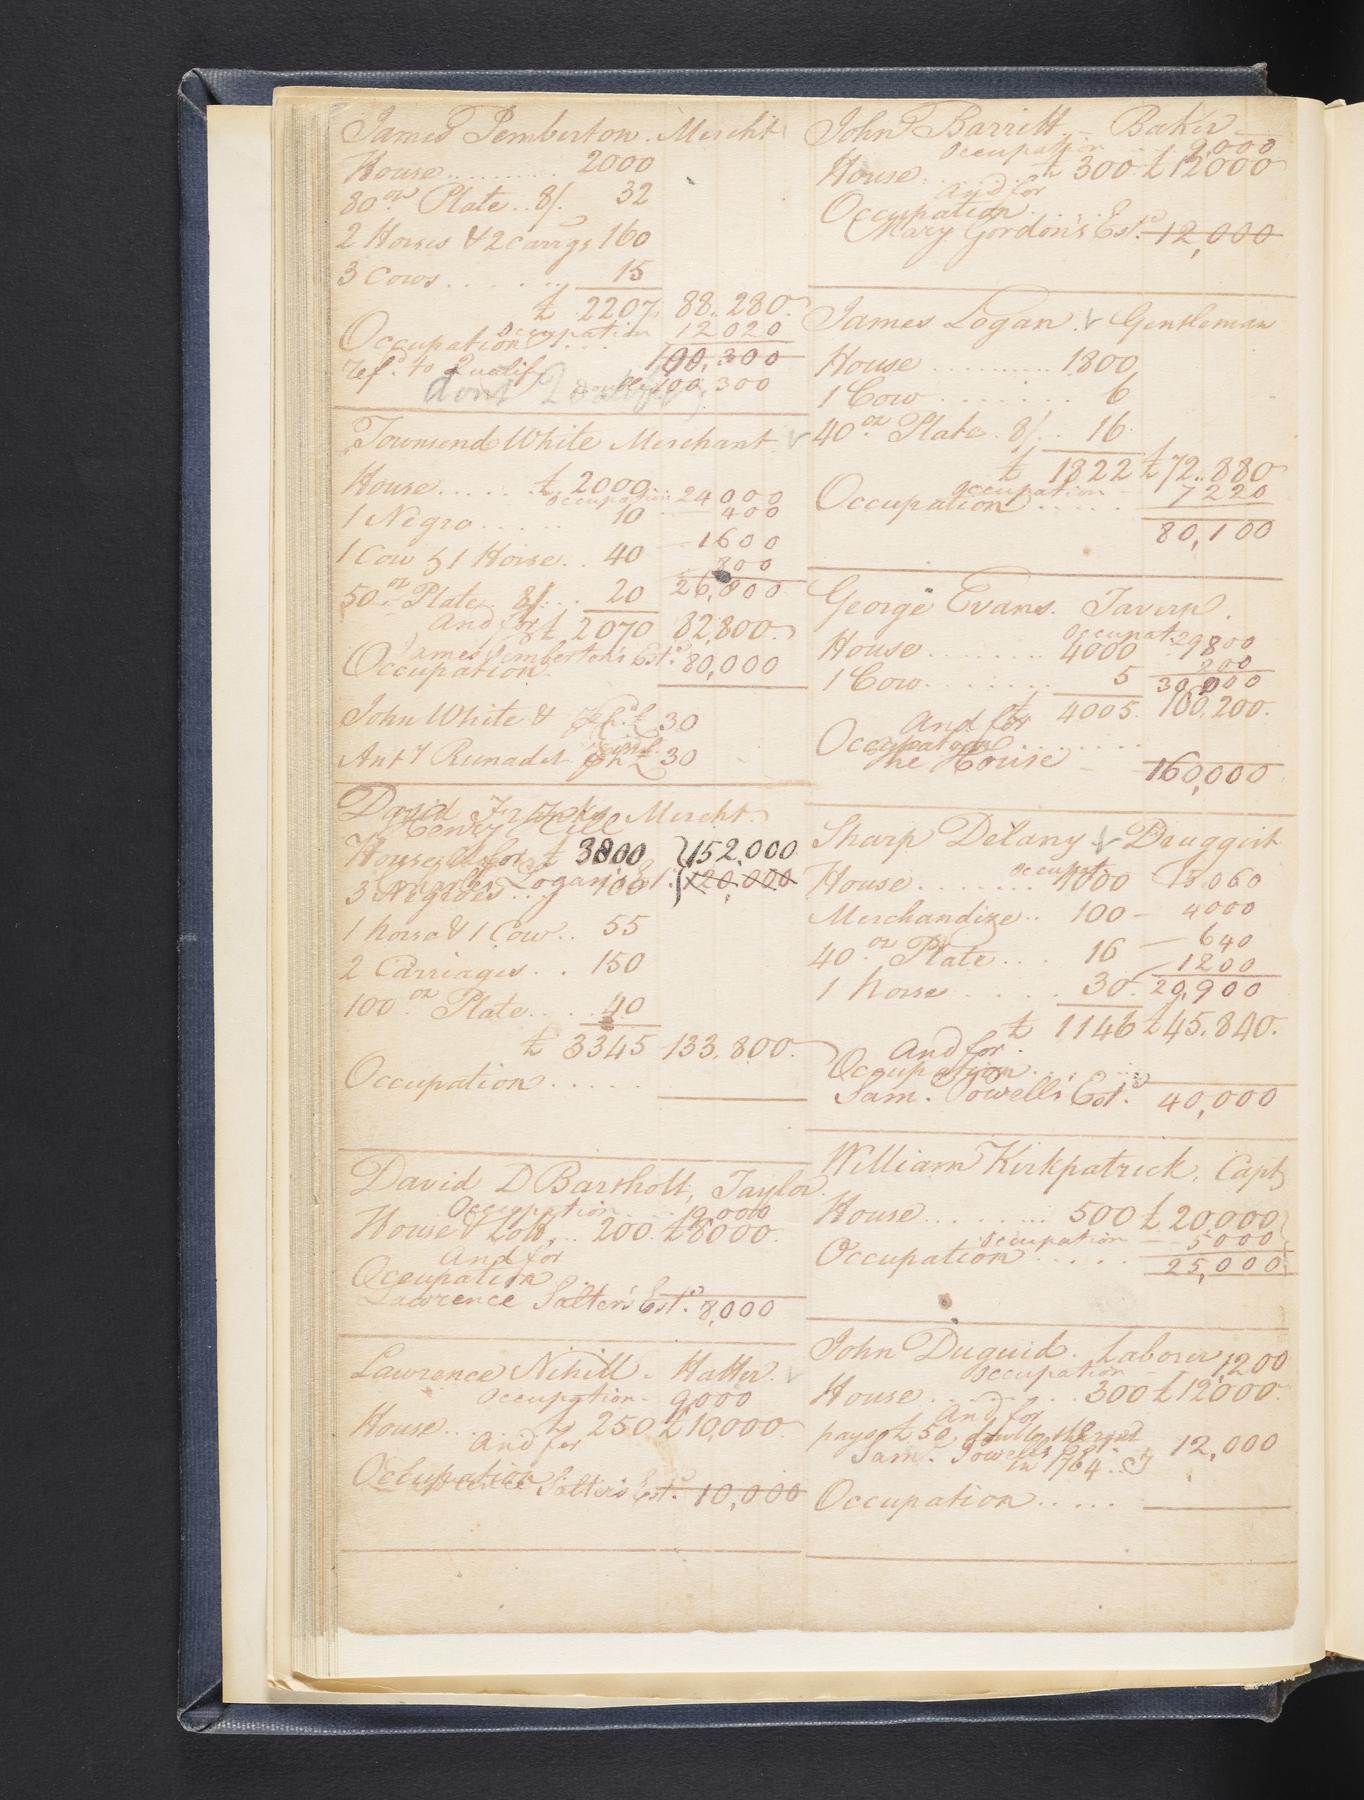 James Pemberton . Mercht
House .......... 2000
80 oz Plate .. 8/. 32
2 Horses & 2 carrgs 160
3 Cows ........ 15
£ 2207 88..280
Occupation 12020
Occupation ....
100,300
Ref.d to Qualify
double 100,300
dont Qualify
Townsend White Merchant
House ...... £ 2000
Occupation 24000
1 Negro ...... 10 400
1 Cow & 1 Horse .. 40 1600
800
50 oz Plate 8/. .. 20 26,800
And for £ 2070 82,800
James Pemberton's Est.e 80,000
Occupation
John White & 30
Ant.y 30
David Franks Mercht.
Henry Hill
House & for £ 3800 152,000
Charles Logan's Est. 120,000
3 Negroes .... 100
1 horse & 1 Cow .. 55
2 Carriages .. 150
100 oz Plate .... 40
£ 3345 133,800
Occupation .....
David D Bartholt, Taylor
Occupation .... 12,000
House & Lott ... 200 £8000
And for
Occupation
Lawrence Salter's Est.e 8,000
Lawrence Nihill . Hatter
Occupation - 9,000
House ... £ 250 £10,000
And for
Occupation
Lawrence Salter's Est.e 10,000
John Barritt .. Baker
Occupation 9,000
House ....... £ 300 £12000
And for
Occupation ......
Mary Gordon's Est.e 12,000
James Logan . Gentleman
House .......... 1800
1 Cow ........ 6
40 oz Plate . 8/. .. 16
£ 1822 £72..880
Occupation 7220
Occupation .....
80,100
George Evans . Tavern
Occupat. 29800
House ......... 4000
200
1 Cow ........ 5 30,000
£ 4005 160,200
And for
Occupation ........
The House 160,000
Sharp Delany Druggist
Occupat. 15060
House ........ 1000
Merchandize .. 100 - 4000
40 oz Plate ... 16 - 640
1200
1 horse ..... 30 20,900
£ 1146 £45,840
And for
Occupation .....
Sam. Powell's Est.e 40,000
William Kirkpatrick, Capt
House ........ 500 £ 20,000
Occupation 5000
Occupation ..... 25,000
John Duguid . Laborer
Occupation - 1,200
House ........ 300 £12000
And for
pays £ 50, double the rent
Sam. Powell's Est. 12,000
in 1764
Occupation .....